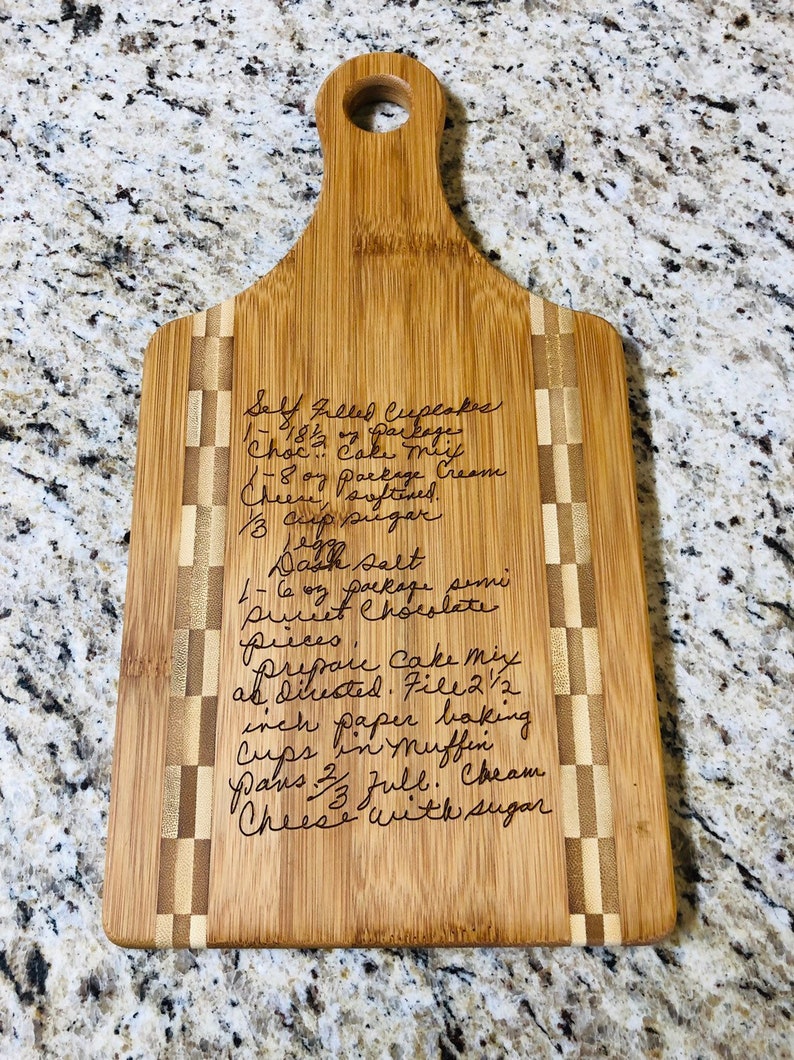 Self Filled Cupcakes
1 - 18 1/2 oz package
Choc.. Cake Mix
1 - 8 oz package Cream
Cheese, softined.
1/3 cup sugar
1 egg
Dash salt
1 - 6 oz package semi
sweet Chocolate
pieces,
prepare Cake Mix
as directed. Fill 2 1/2
inch paper baking
cups in Muffin
pans. 2/3 Full. Cream
Cheese with sugar